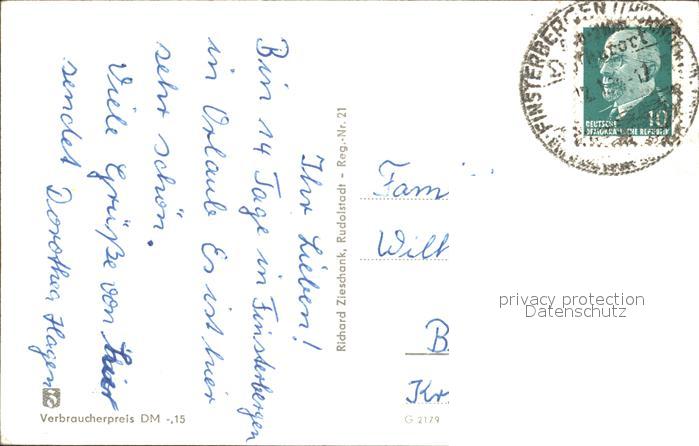 Ihr Lieben!
Bin 14 Tage in Finsterbergen
in Urlaub Es ist hier
sehr schön.
Viele Grüße von hier
sendet Dorothea Hagen
Richard Zieschank, Rudolstadt - Reg.-Nr. 21
Verbraucherpreis DM -,15
G 2179
Fam
Wilt
B
Kr
FINSTERBERGEN
DEUTSCHE
DEMOKRATISCHE REPUBLIK
10
privacy protection
Datenschutz